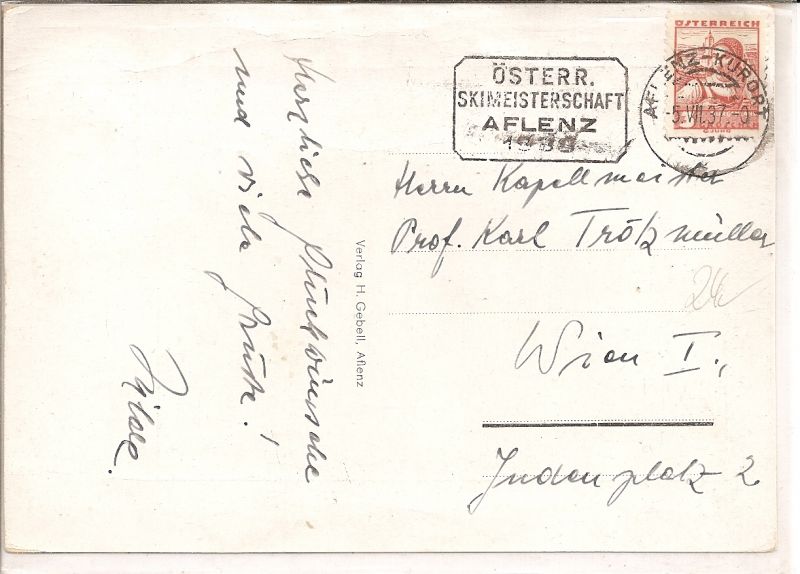 Herzliche Glückwünsche
und viele Grüße!
Hilde.
Verlag H. Gebell, Aflenz
ÖSTERR.
SKIMEISTERSCHAFT
AFLENZ
ÖSTERREICH
AFLENZ KURORT
-5.VII.37.-9
Herrn Kapellmeister
Prof. Karl Trötzmüller
Wien I.,
Judenplatz 2